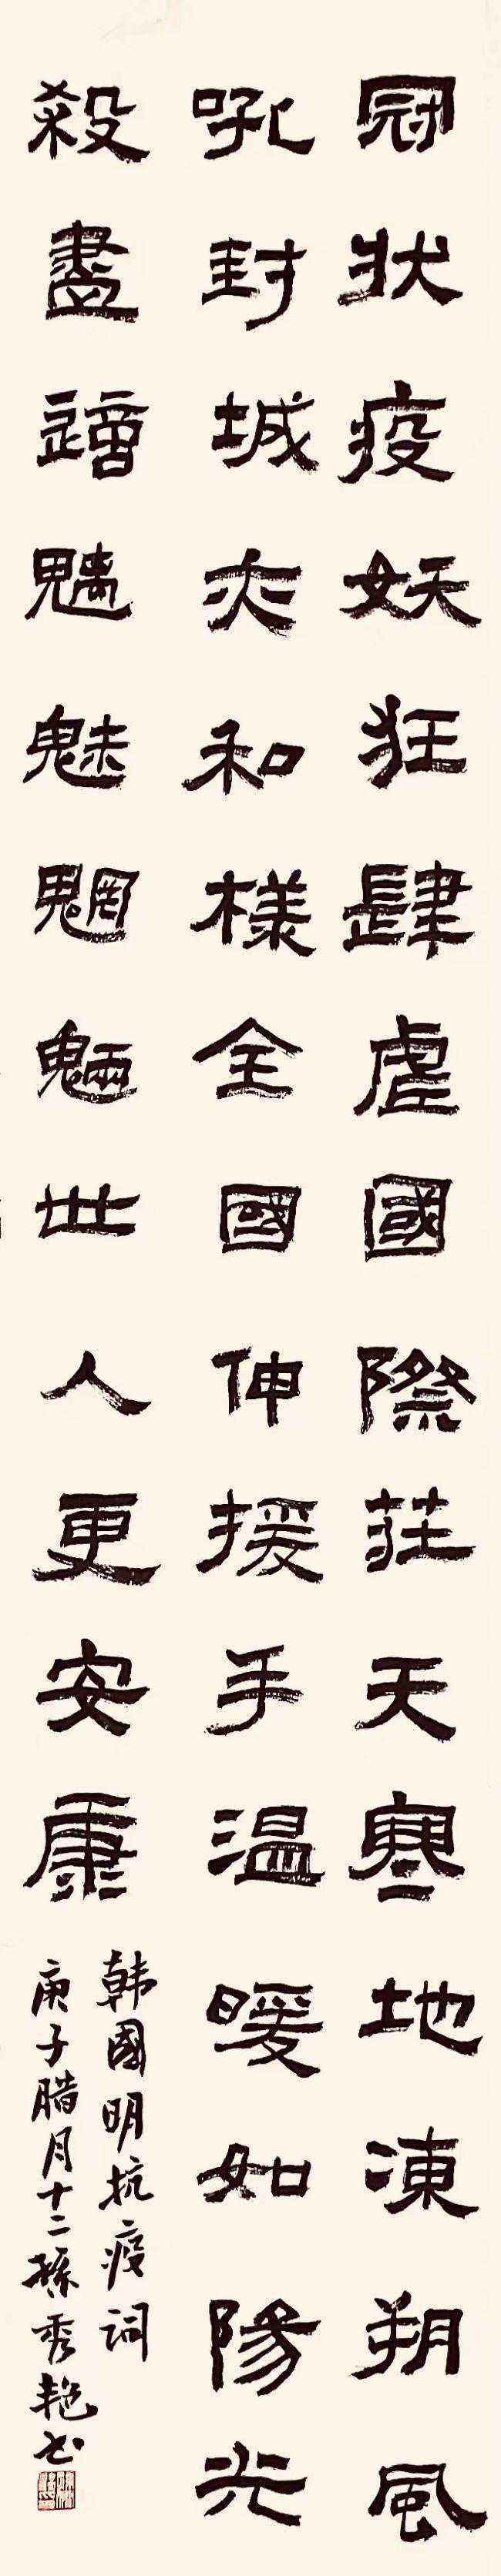 冠狀疫妖狂肆虐國際莊天寒地凍朔風
吼封城大和樣全國伸援手温暖如陽光
殺盡這魑魅魍魎世人更安康
韩國明抗疫词
庚子腊月十二孫秀艳书